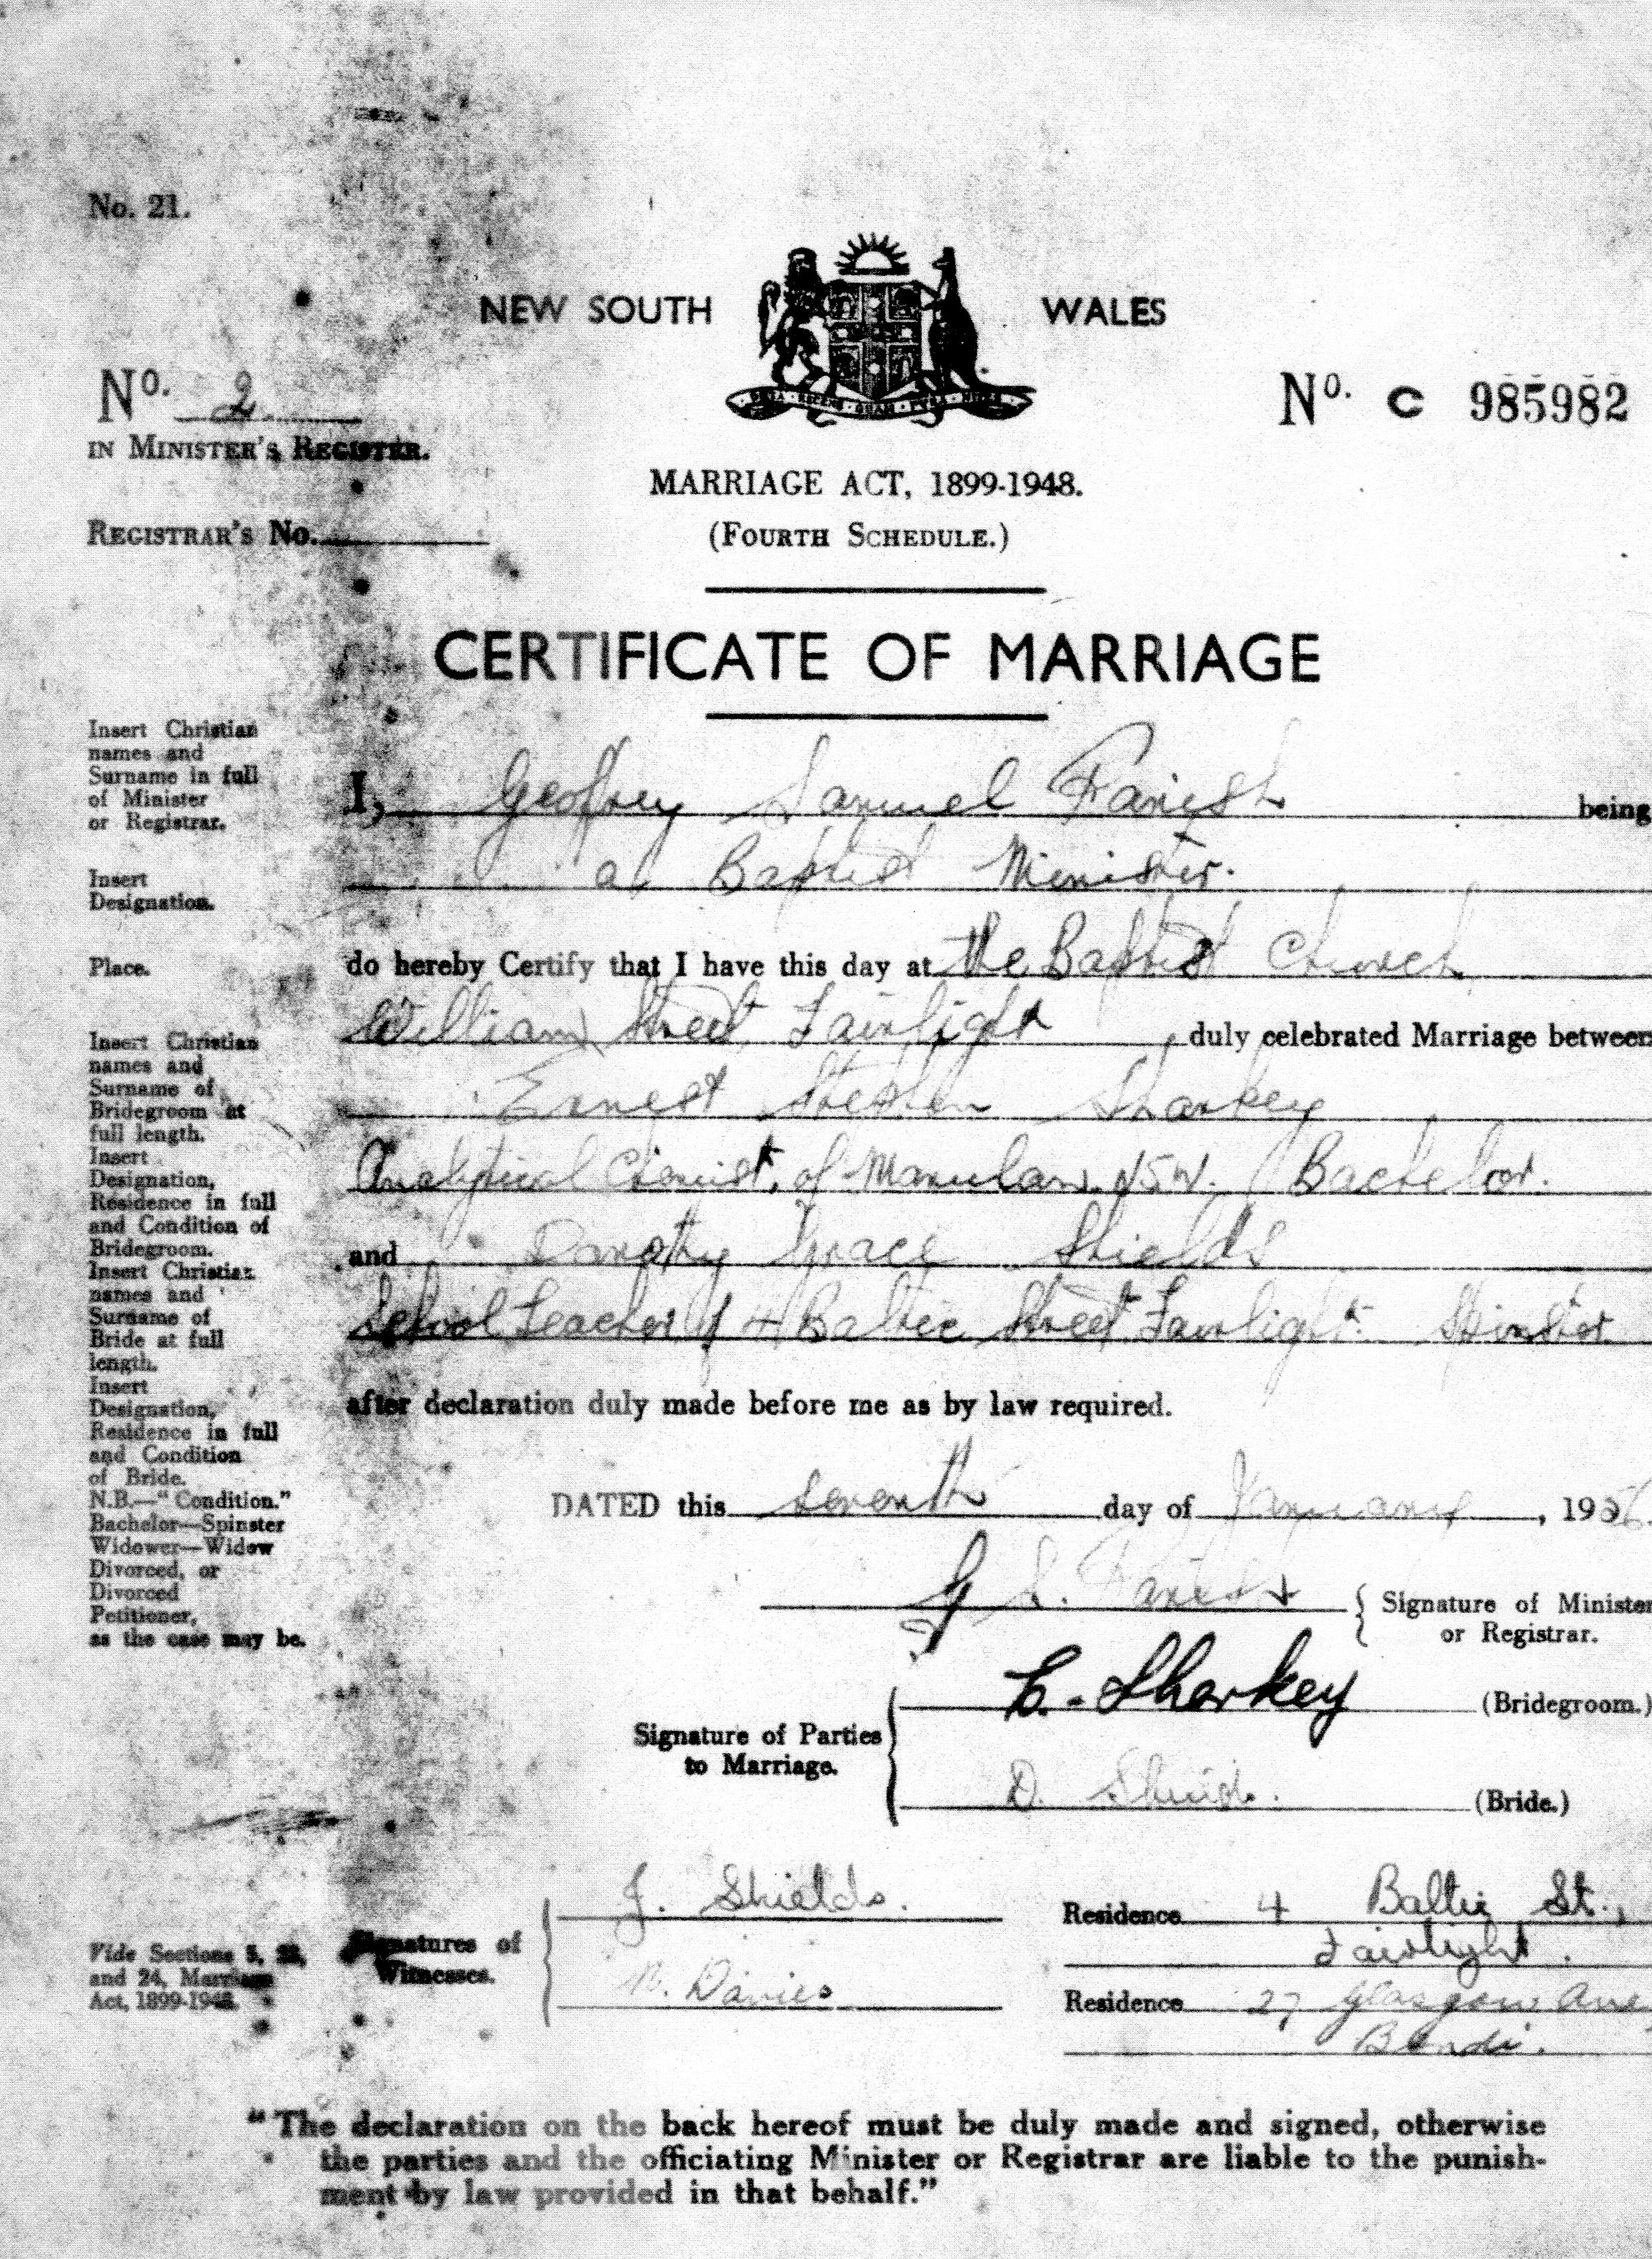 No. 21.
NEW SOUTH WALES
No. 2
IN MINISTER'S REGISTER.
No. C 985982
MARRIAGE ACT, 1899-1948.
REGISTRAR'S No.
(FOURTH SCHEDULE.)
CERTIFICATE OF MARRIAGE
Insert Christian
names and
Surname in full
of Minister
or Registrar.
I, Geoffrey Samuel Parish being
Insert
Designation.
a Baptist Minister.
Place.
do hereby Certify that I have this day at the Baptist Church
William Street Fairlight, duly celebrated Marriage between
Insert Christian
names and
Surname of
Bridegroom at
full length.
Ernest Stephen Sharkey
Insert
Designation,
Residence in full
and Condition of
Bridegroom.
Analytical Chemist, of Marulan N.S.W. Bachelor.
Insert Christian
names and
Surname of
Bride at full
length.
and Dorothy Grace Shields
Insert
Designation,
Residence in full
and Condition
of Bride.
School Teacher of 4 Baltic Street Fairlight. Spinster
N.B.—"Condition."
Bachelor—Spinster
Widower—Widow
Divorced, or
Divorced
Petitioner,
as the case may be.
after declaration duly made before me as by law required.
DATED this seventh day of January, 1956.
G S. Parish
Signature of Minister
or Registrar.
E. Sharkey (Bridegroom.)
Signature of Parties
to Marriage.
D. Shields. (Bride.)
J. Shields. Residence 4 Baltic St.,
Fairlight.
Signatures of
Witnesses.
N. Davies Residence 27 Glasgow Ave
Bondi.
Vide Sections 5,
and 24, Marriage
Act, 1899-1948.
"The declaration on the back hereof must be duly made and signed, otherwise
the parties and the officiating Minister or Registrar are liable to the punish-
ment by law provided in that behalf."